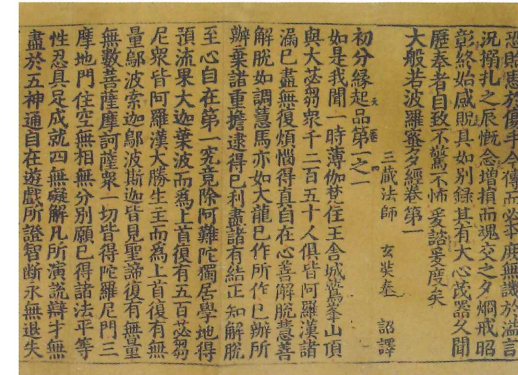 恐貽患於傷手今傳而必本庶無譏於溢言
況搦扎之辰慨念增損而魂交之夕烱戒昭
彰終始感貺具如別錄其有大心茂器久聞
歷奉者自致不驚不怖爰諮爰度矣
大般若波羅蜜多經卷第一
三藏法師 玄奘奉 詔譯
初分緣起品第一之一 天 四
如是我聞一時薄伽梵住王舍城鷲峯山頂
與大苾芻衆千二百五十人俱皆阿羅漢諸
漏已盡無復煩惱得真自在心善解脫慧善
解脫如調慧馬亦如大龍已作所作已辦所
辦棄諸重擔逮得已利盡諸有結正知解脫
至心自在第一究竟除阿難陀獨居學地得
預流果大迦葉波而為上首復有五百苾芻
尼衆皆阿羅漢大勝生主而為上首復有無
量鄔波索迦鄔波斯迦皆見聖諦復有無量
無數菩薩摩訶薩衆一切皆得陀羅尼門三
摩地門住空無相無分別願已得諸法平等
性忍具足成就四無礙解凡所演說辯才無
盡於五神通自在遊戲所證智斷永無退失